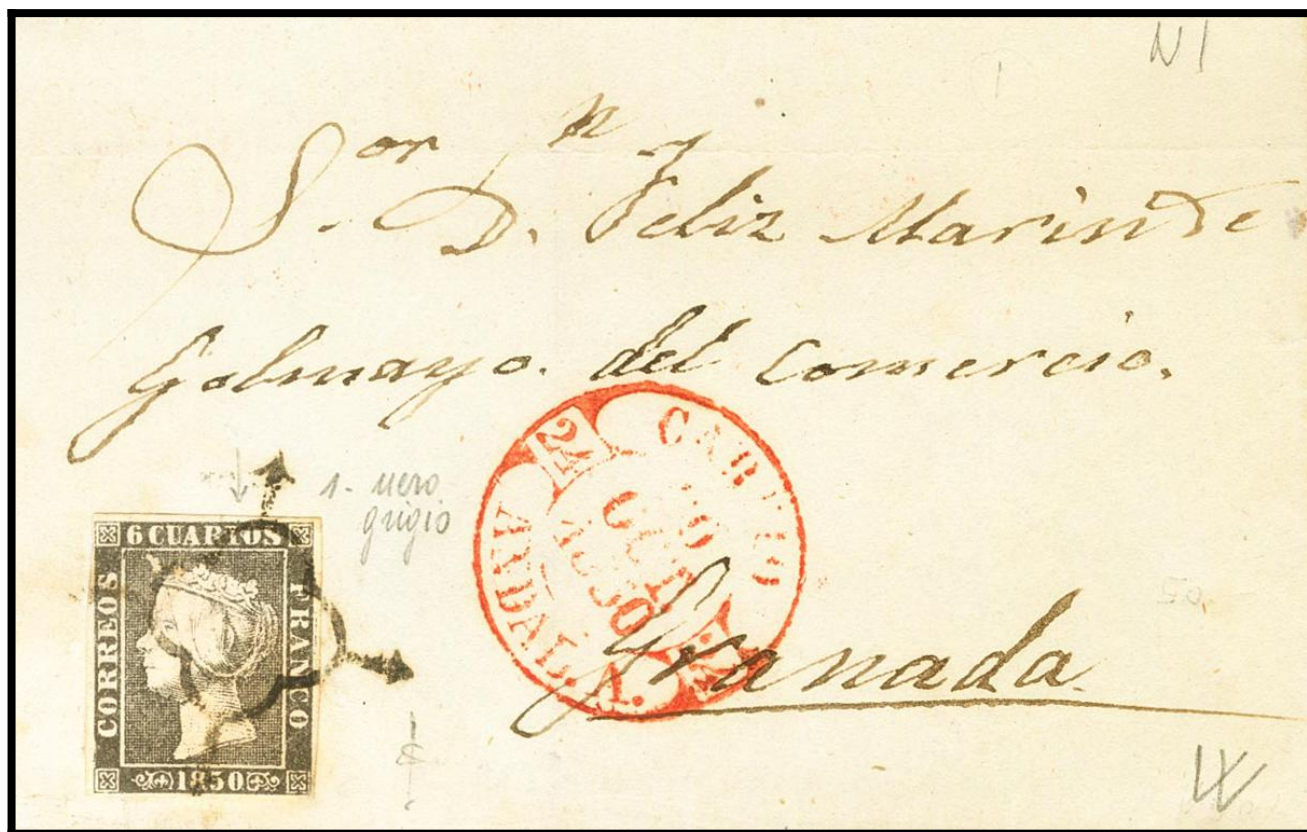 N1
S.or D.n Feliz Marin de
Golmayo. del Comercio.
1- nero
grigio
6 CUARTOS
CORREOS
FRANCO
1850
OCT
1850
ANDAL.
Granada